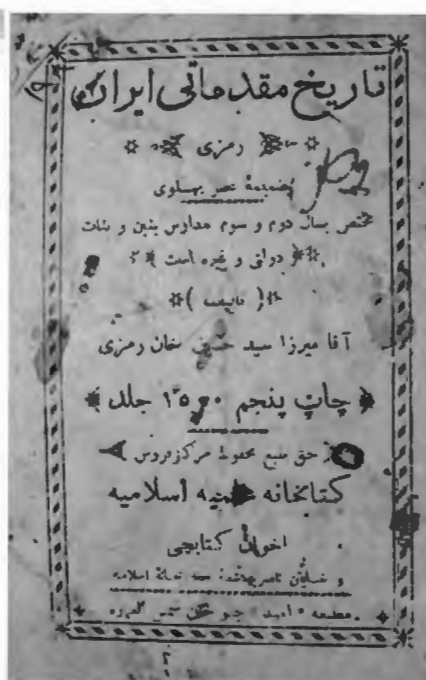 تاریخ مقدماتی ایران
رمزی
بضمیمهٔ عصر پهلوی
مختص بسال دوم و سوم مدارس بنین و بنات
دولتی و غیره است
( تالیف )
آقا میرزا سید حسین خان رمزی
چاپ پنجم جلد
حق طبع محفوظ مرکز فروش
کتابخانه علمیه اسلامیه
اخوان کتابچی
و خیابان ناصریه
مطبعه « امید » جنب شمس العماره